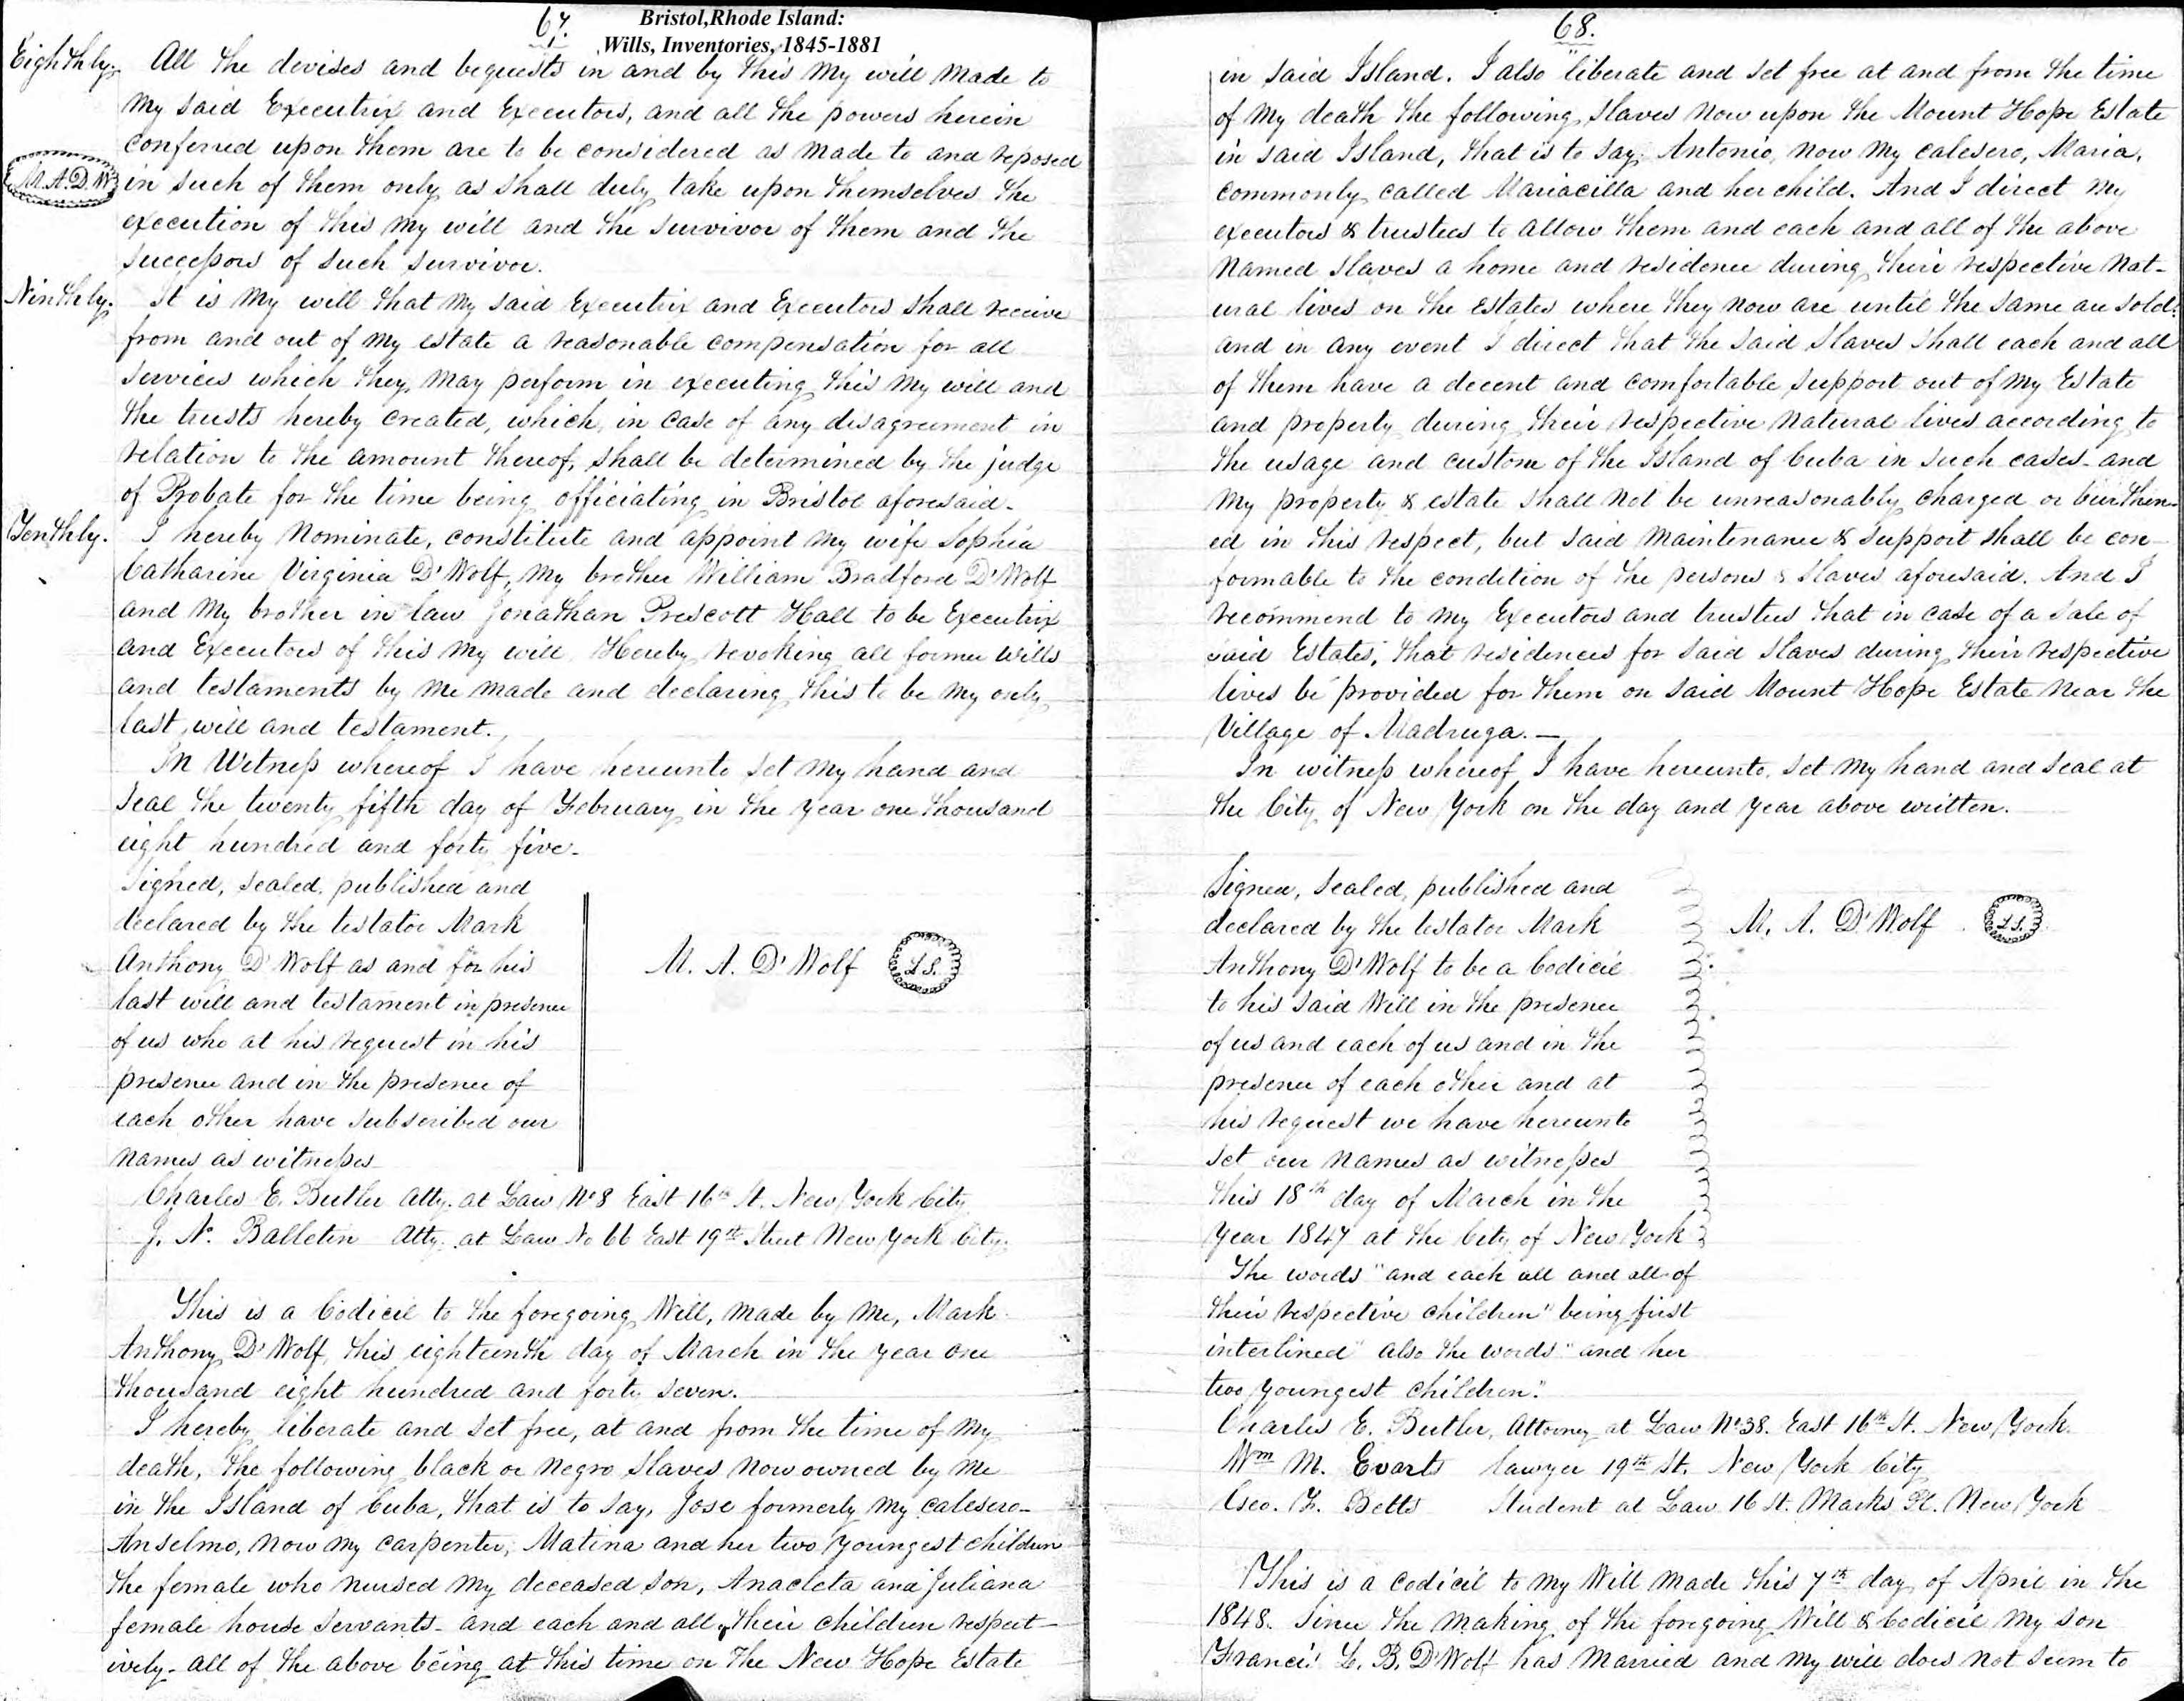 67.
Bristol,Rhode Island:
Wills, Inventories, 1845-1881
Eighthly. All the devises and bequests in and by this my will made to
my said Executrix and Executors, and all the powers herein
conferred upon them are to be considered as made to and reposed
M.A.D.W. in such of them only as shall duly take upon themselves the
execution of this my will and the survivor of them and the
successors of such survivor.
Ninthly. It is my will that my said Executrix and Executors shall receive
from and out of my estate a reasonable compensation for all
services which they may perform in executing this my will and
the trusts hereby created, which, in case of any disagreement in
relation to the amount thereof, shall be determined by the judge
of Probate for the time being officiating in Bristol aforesaid.
Tenthly. I hereby nominate, constitute and appoint my wife Sophia
Catharine Virginia D'Wolf, my brother William Bradford D'Wolf
and my brother in law Jonathan Prescott Hall to be Executrix
and Executors of this my will. Hereby revoking all former wills
and testaments by me made and declaring this to be my only
last will and testament.
In Witness whereof I have hereunto set my hand and
seal the twenty fifth day of February in the year one thousand
eight hundred and forty five.
Signed, sealed, published and
declared by the testator Mark
Anthony D'Wolf as and for his
last will and testament in presence
of us who at his request in his
presence and in the presence of
each other have subscribed our
names as witnesses
M. A. D'Wolf L.S.
Charles E. Butler Atty. at Law No 8 East 16th St. New York City
J. N. Balletin Atty. at Law No 66 East 19th Street New York City.
This is a Codicil to the foregoing Will, made by me, Mark
Anthony D'Wolf, this eighteenth day of March in the year one
thousand eight hundred and forty seven.
I hereby liberate and set free, at and from the time of my
death, the following black or negro slaves now owned by me
in the Island of Cuba, that is to say, Jose formerly my calesero-
Anselmo, now my carpenter, Matina and her two youngest children
the female who nursed my deceased son, Anacleta and Juliana
female house servants- and each and all their children respect-
ively- all of the above being at this time on the New Hope Estate
68.
in said Island. I also liberate and set free at and from the time
of my death the following slaves now upon the Mount Hope Estate
in said Island, that is to say, Antonio, now my calesero, Maria,
commonly called Mariacilla and her child. And I direct my
executors & trustees to allow them and each and all of the above
named slaves a home and residence during their respective nat-
ural lives on the Estates where they now are until the same are sold:
and in any event I direct that the said slaves shall each and all
of them have a decent and comfortable support out of my Estate
and property during their respective natural lives according to
the usage and custom of the Island of Cuba in such cases- and
my property & estate shall not be unreasonably charged or burthen-
ed in this respect, but said maintenance & support shall be con-
formable to the condition of the persons & slaves aforesaid. And I
recommend to my Executors and trustees that in case of a sale of
said Estates, that residences for said slaves during their respective
lives be provided for them on said Mount Hope Estate near the
Village of Madruga.—
In witness whereof I have hereunto set my hand and seal at
the City of New York on the day and year above written.
Signed, sealed, published and
declared by the testator Mark
Anthony D'Wolf to be a Codicil
to his said Will in the presence
of us and each of us and in the
presence of each other and at
his request we have hereunto
set our names as witnesses
this 18th day of March in the
year 1847 at the City of New York
M. A. D'Wolf L.S.
The words "and each all and all of
their respective children" being first
interlined" also the words "and her
two youngest children."
Charles E. Butler, Attorney at Law No 38. East 16th St. New York.
Wm M. Evarts lawyer 19th St. New York City
Geo. F. Betts Student at Law 16 St. Marks Pl. New York
This is a codicil to my Will made this 7th day of April in the
1848. Since the making of the foregoing Will & Codicil my son
Francis L. B. D'Wolf has married and my will does not seem to